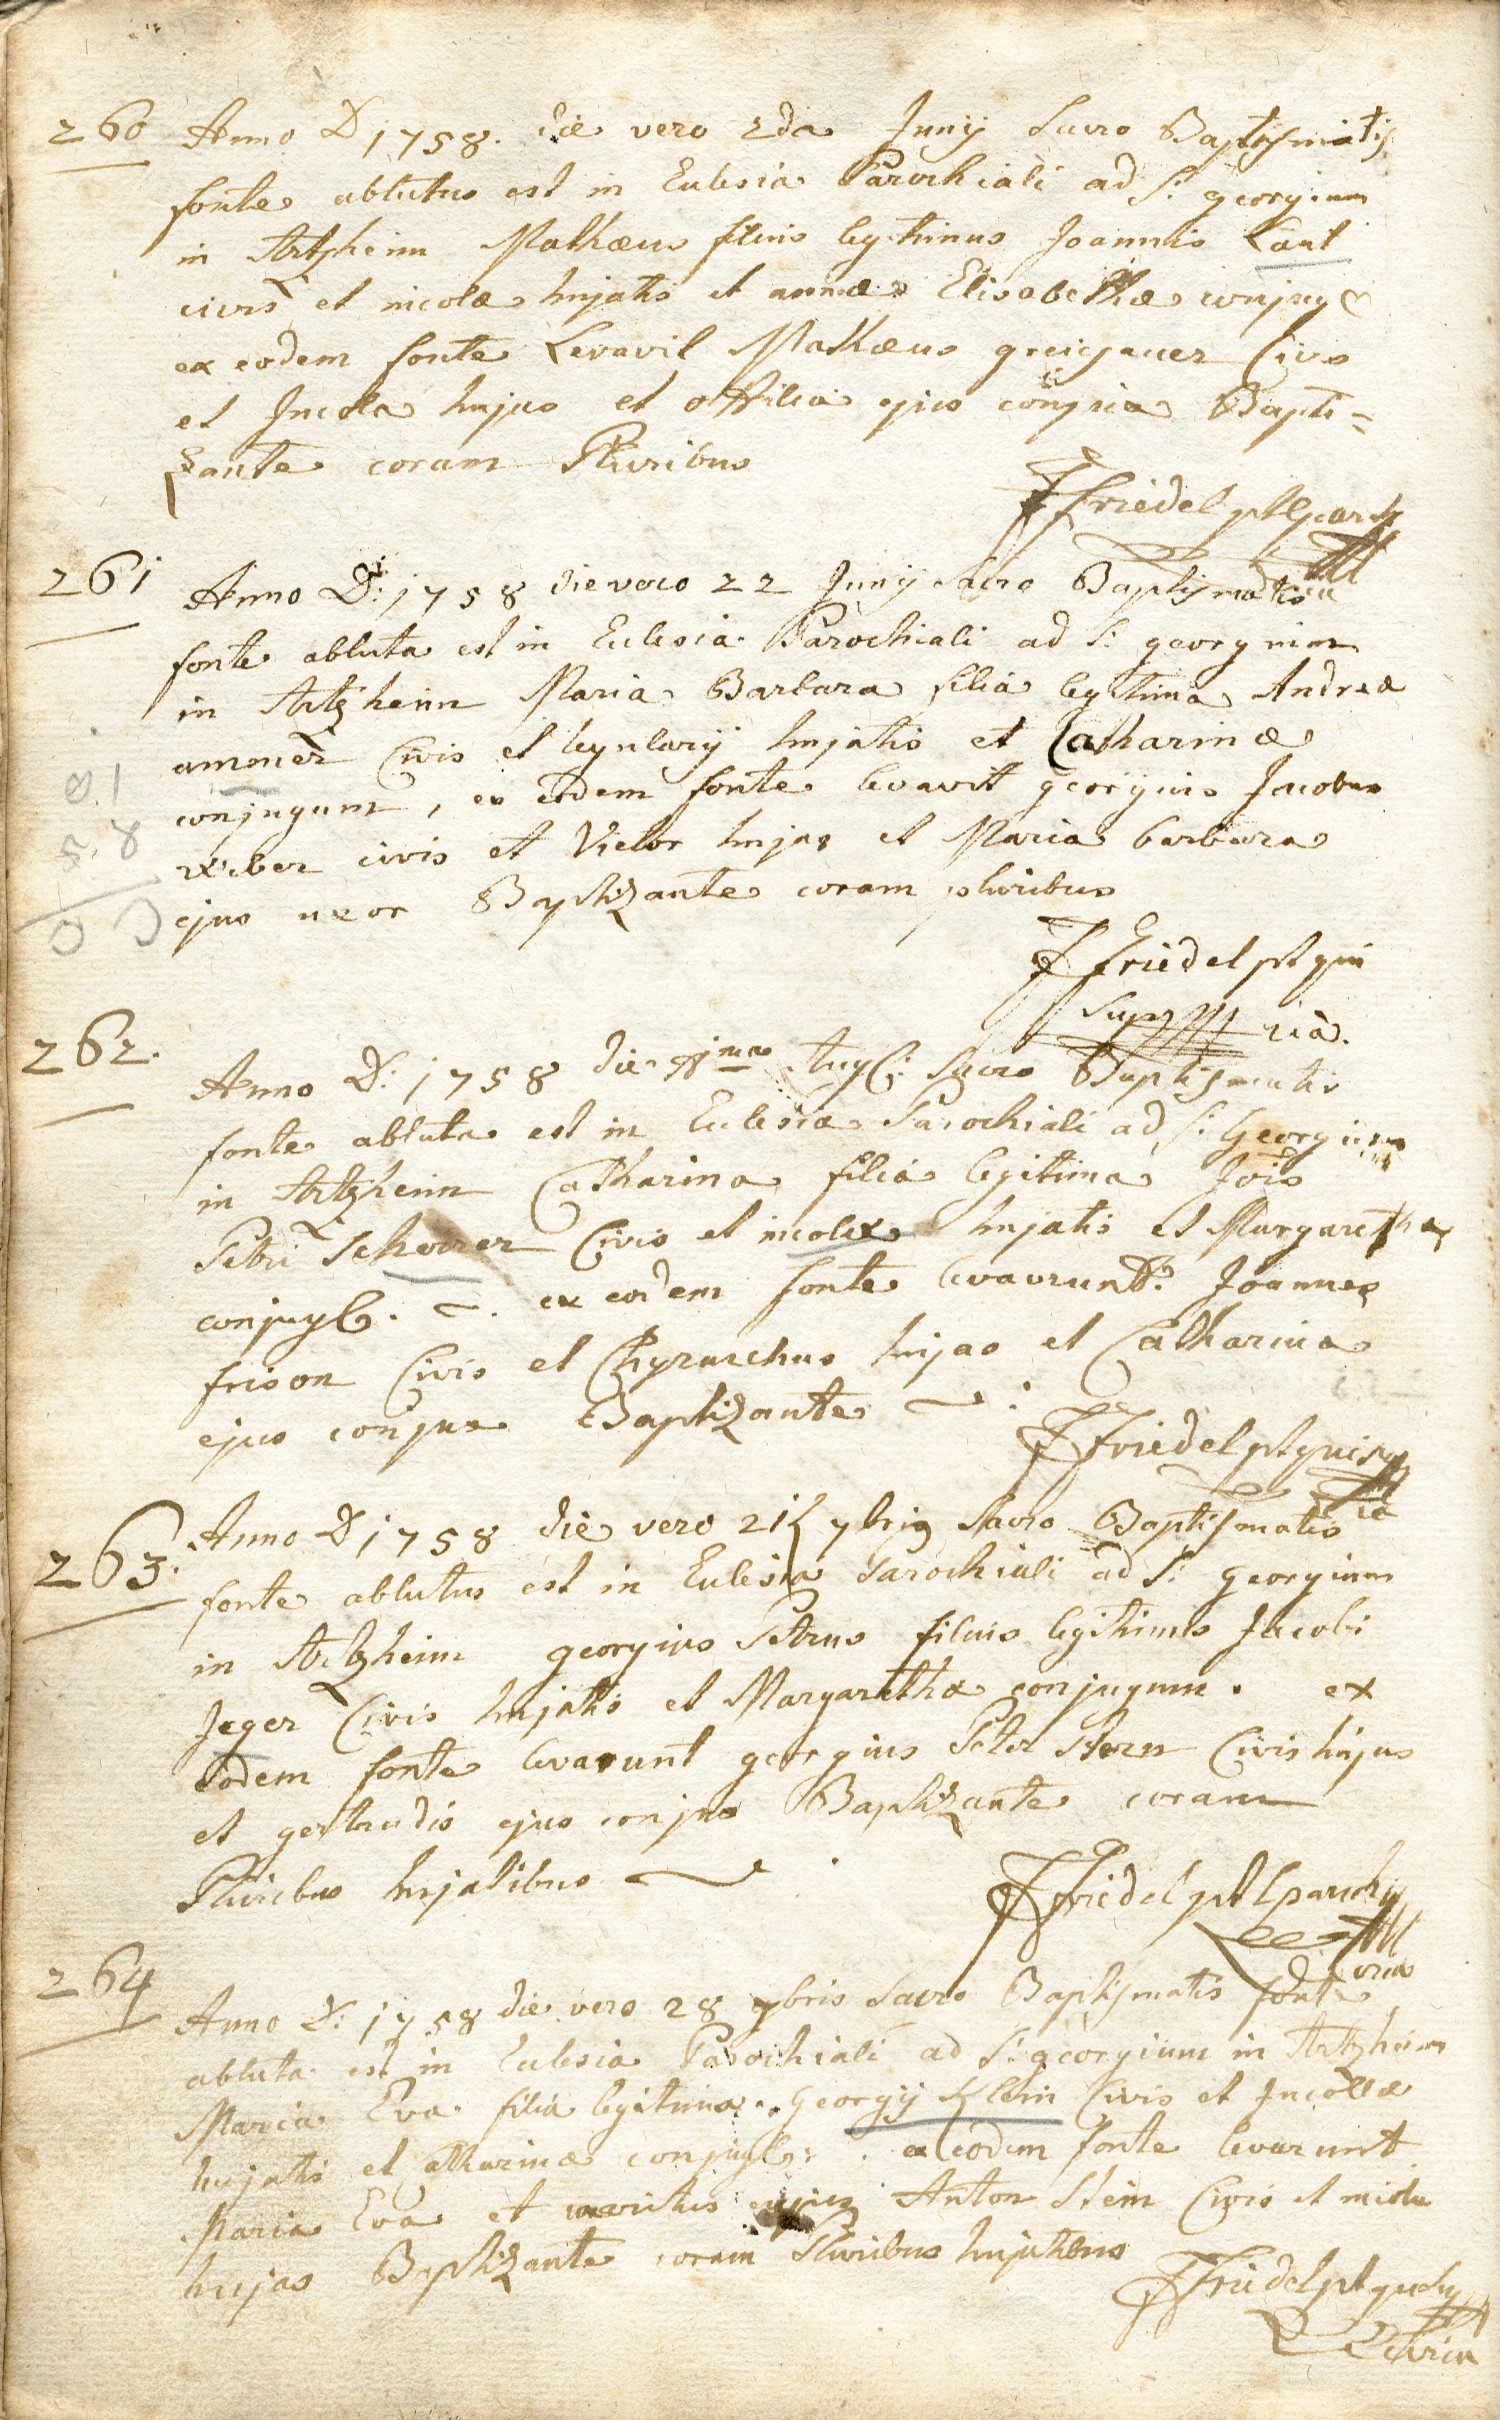 260 Anno D 1758. die vero 2da Junij Sacro Baptismatis
fonte ablutus est in Eclesia Parochiali ad S: georgium
in Artzheim Mathæus filius legithimus Joannis Laut
civis et incolæ hujatis et annæ Elisabethæ conjug
ex eodem fonte Levavit Mathæus greigauer Civis
et Incola hujus et ottilia ejus conjux Bapti=
zante coram Pluribus
Friedel
261 Anno D: 1758 die vero 22 Junij sacro Baptismatis
fonte abluta est in Eclesia Parochiali ad S: georgium
in Artzheim Maria Barbara filia legitima Andreæ
ammer Civis et hujatis et Catharinæ
conjugum, ex eodem fonte levavit georgius Jacobus
weber civis et Vietor hujas et Maria barbara
ejus uxor Baptizante coram pluribus
Friedel
262. Anno D: 1758 die Aug: Sacro Baptismatis
fonte abluta est in Eclesia Parochiali ad S: Georgium
in Artzheim Catharina filia legitima Jois
Petri Scherrer Civis et incolæ hujatis et Margarethæ
conjug. ex eodem fonte levavrunt. Joannes
frison Civis et Chyrurchus hujas et Catharina
ejus conjux Baptizante
Friedel
263. Anno D 1758 die vero 21 7bris Sacro Baptismatis
fonte ablutus est in Eclesia Parochiali ad S: georgium
in Artzheim georgius Petrus filius legithimus Jacobi
Jeger Civis hujatis et Margarethæ conjugum. ex
eodem fonte levarunt georgius Peter Stern Civis hujus
et gertrudis ejus conjux Baptizante coram
Pluribus hujatibus
Friedel
264 Anno D: 1758 die vero 28 7bris Sacro Baptismatis fonte
abluta est in Eclesia Parochiali ad S: georgium in Artzheim
Maria Eva filia legitima georgij Klein Civis et Incolæ
hujatis et atharinæ conjug: . ex eodem fonte levarunt
Maria Eva et maritus ejus Anton Stein Civis et incola
hujas Baptizante coram Pluribus hujatibus
Friedel